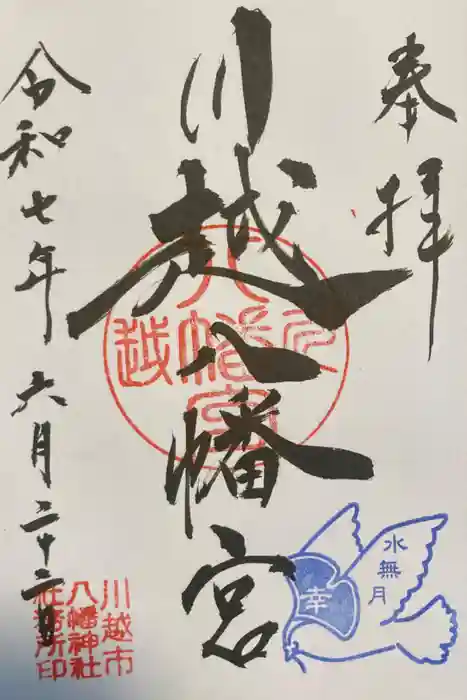 奉拝
川越八幡宮
令和七年 六月二十二日
川越
八幡宮
之印
水無月
幸
川越市
八幡神社
社務所印